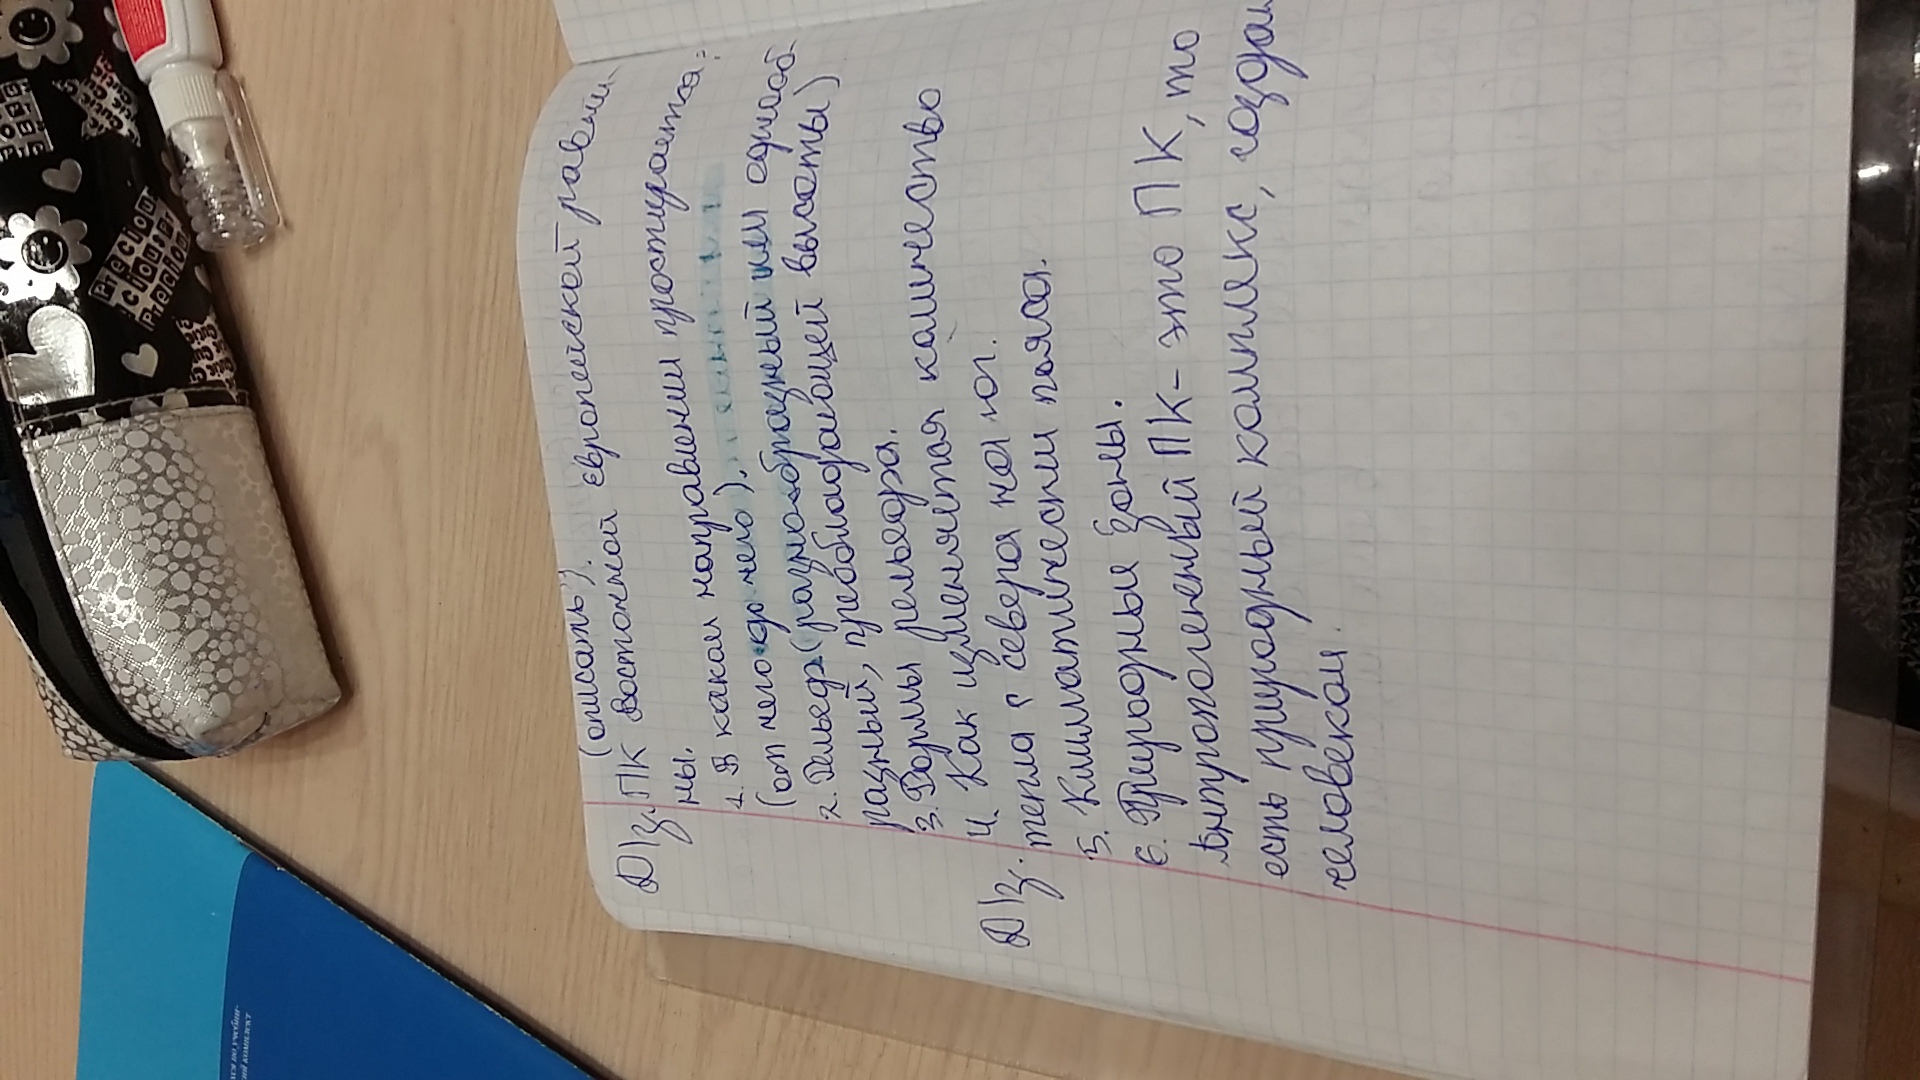 (описать).
Д/з. ПК Восточной Европейской равни
ны.
1. В каком направлении простирается?
(от чего до чего).
2. Рельеф (разнообразный или однооб
разный, преобладающей высоты)
3. Формы рельефа.
4. Как изменяется количество
Д/з. тепла с севера на юг.
5. Климатически пояса.
6. Природные зоны.
Антропогененый ПК - это ПК, то
есть природный комплекс, создан
человеком.
Precious
Precious
Precious